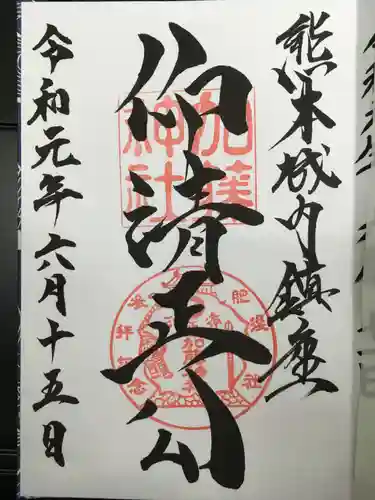 熊本城内鎮座
仰清正公
加藤
神社
令和元年六月十五日